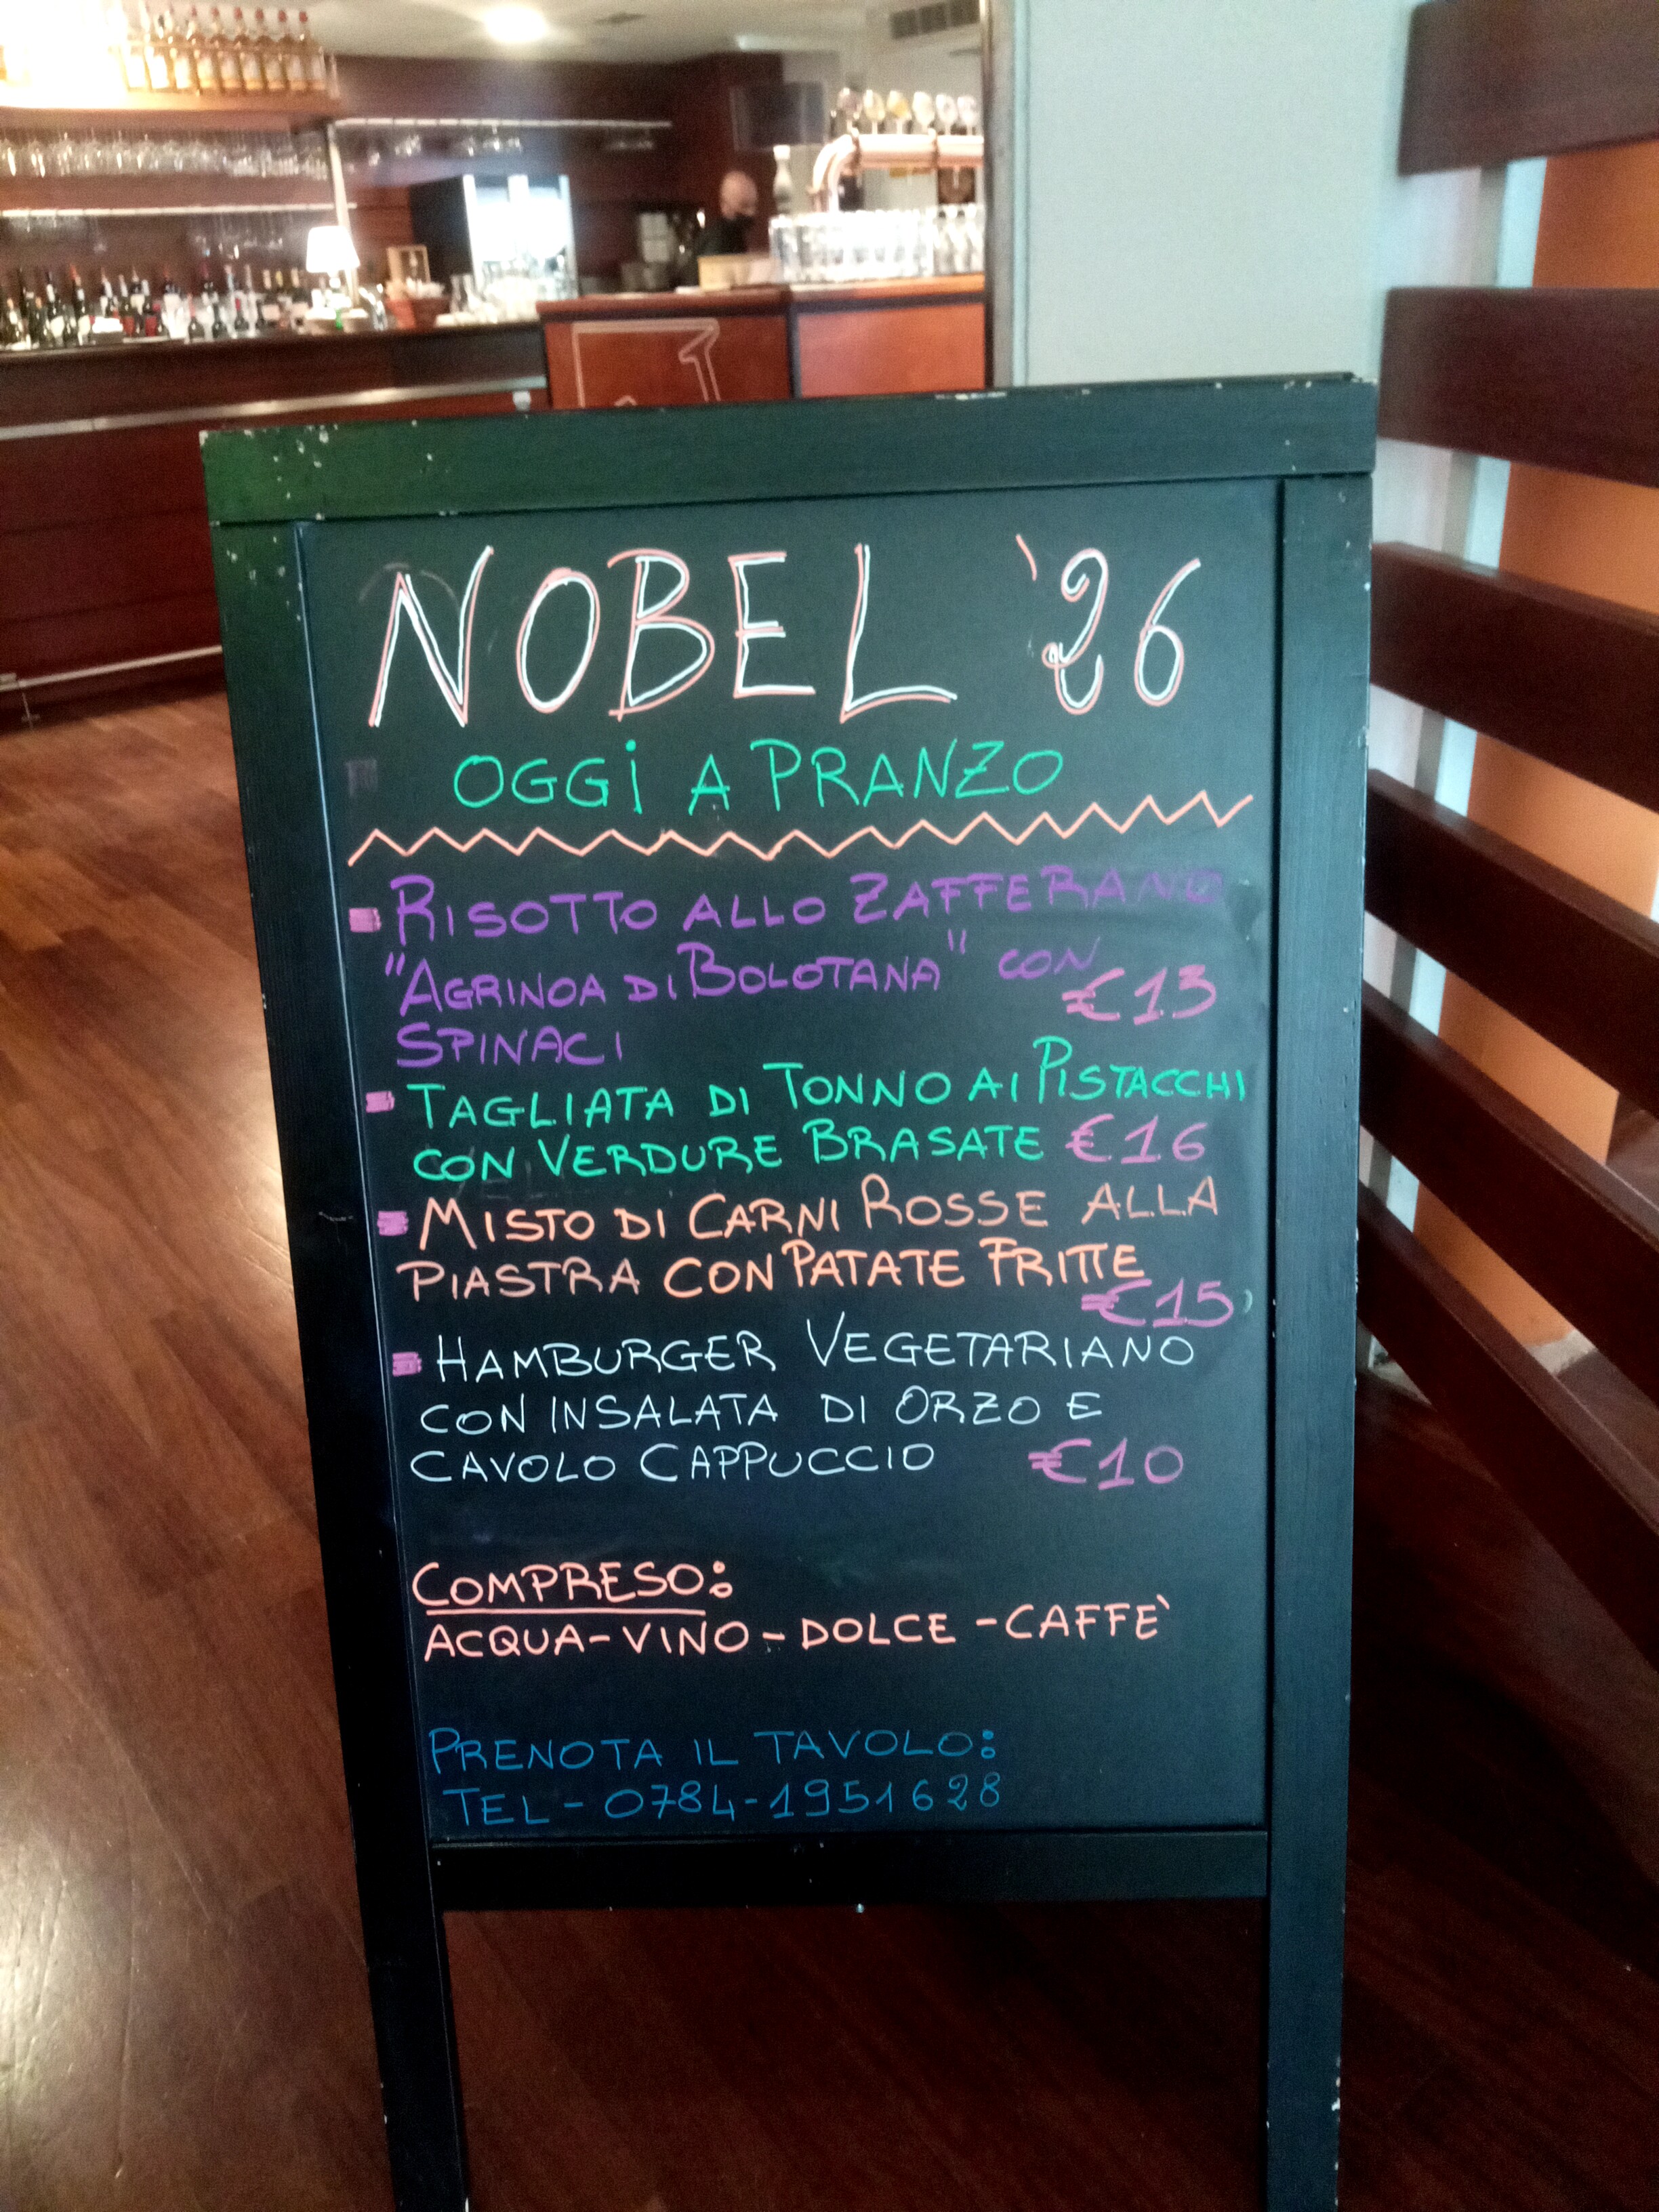 NOBEL '26
OGGi A PRANZO
RISOTTO ALLO ZAFFERANO
"AGRINOA DI BOLOTANA" CON
€13
SPINACI
TAGLIATA DI TONNO AI PISTACCHI
CON VERDURE BRASATE €16
MISTO DI CARNI ROSSE ALLA
PIASTRA CON PATATE FRITTE
€15
HAMBURGER VEGETARIANO
CON INSALATA DI ORZO E
CAVOLO CAPPUCCIO €10
COMPRESO:
ACQUA-VINO-DOLCE-CAFFE'
PRENOTA IL TAVOLO:
TEL-0784-1951628